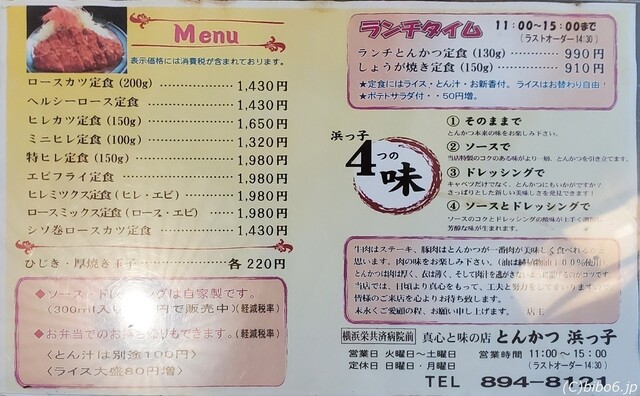 Menu
表示価格には消費税が含まれております。
ロースカツ定食(200g) ………… 1,430円
ヘルシーロース定食 ………… 1,430円
ヒレカツ定食(150g) ………… 1,650円
ミニヒレ定食(100g) ………… 1,320円
特ヒレ定食(150g) ………… 1,980円
エビフライ定食 ………… 1,980円
ヒレミックス定食(ヒレ・エビ) ……… 1,980円
ロースミックス定食(ロース・エビ) …… 1,980円
シソ巻ロースカツ定食 ………… 1,430円
ひじき・厚焼き玉子 ………… 各220円
◆ソース・ドレッシングは自家製です。
(300ml入り 円で販売中)(軽減税率)
◆お弁当でのお持ち帰りもできます。(軽減税率)
<とん汁は別途100円>
<ライス大盛80円増>
ランチタイム 11:00~15:00まで
(ラストオーダー14:30)
ランチとんかつ定食(130g) …… 990円
しょうが焼き定食(150g) …… 910円
★定食にはライス・とん汁・お新香付。ライスはお替わり自由!
★ポテトサラダ付・・50円増。
浜っ子
4つの味
① そのままで
とんかつ本来の味をお楽しみ下さい。
② ソースで
当店特製のコクのある味がより一層、とんかつを引き立てます。
③ ドレッシングで
キャベツだけでなく、とんかつにもいかがですか?
さっぱりとした新しい美味しさを発見できます!
④ ソースとドレッシングで
ソースのコクとドレッシングの酸味が上手く調和し
芳醇な味が生まれます。
牛肉はステーキ、豚肉はとんかつが一番肉が美味しく食べれるかと
思います。肉の味をお楽しみ下さい。(油は植物油100%使用)
とんかつは肉は厚く、衣は薄く、そして肉汁を逃がさない様に揚げるのがコツです
当店では、日頃より真心をもって、工夫と努力をしてまいりますので
皆様のご来店を心よりお待ち致します。
末永くご愛顧の程、お願い申し上げます。 店主
横浜栄共済病院前 真心と味の店 とんかつ 浜っ子
営業日 火曜日~土曜日 営業時間 11:00~15:00
定休日 日曜日・月曜日 (ラストオーダー14:30)
TEL 894-8121
(C)bibo6.jp